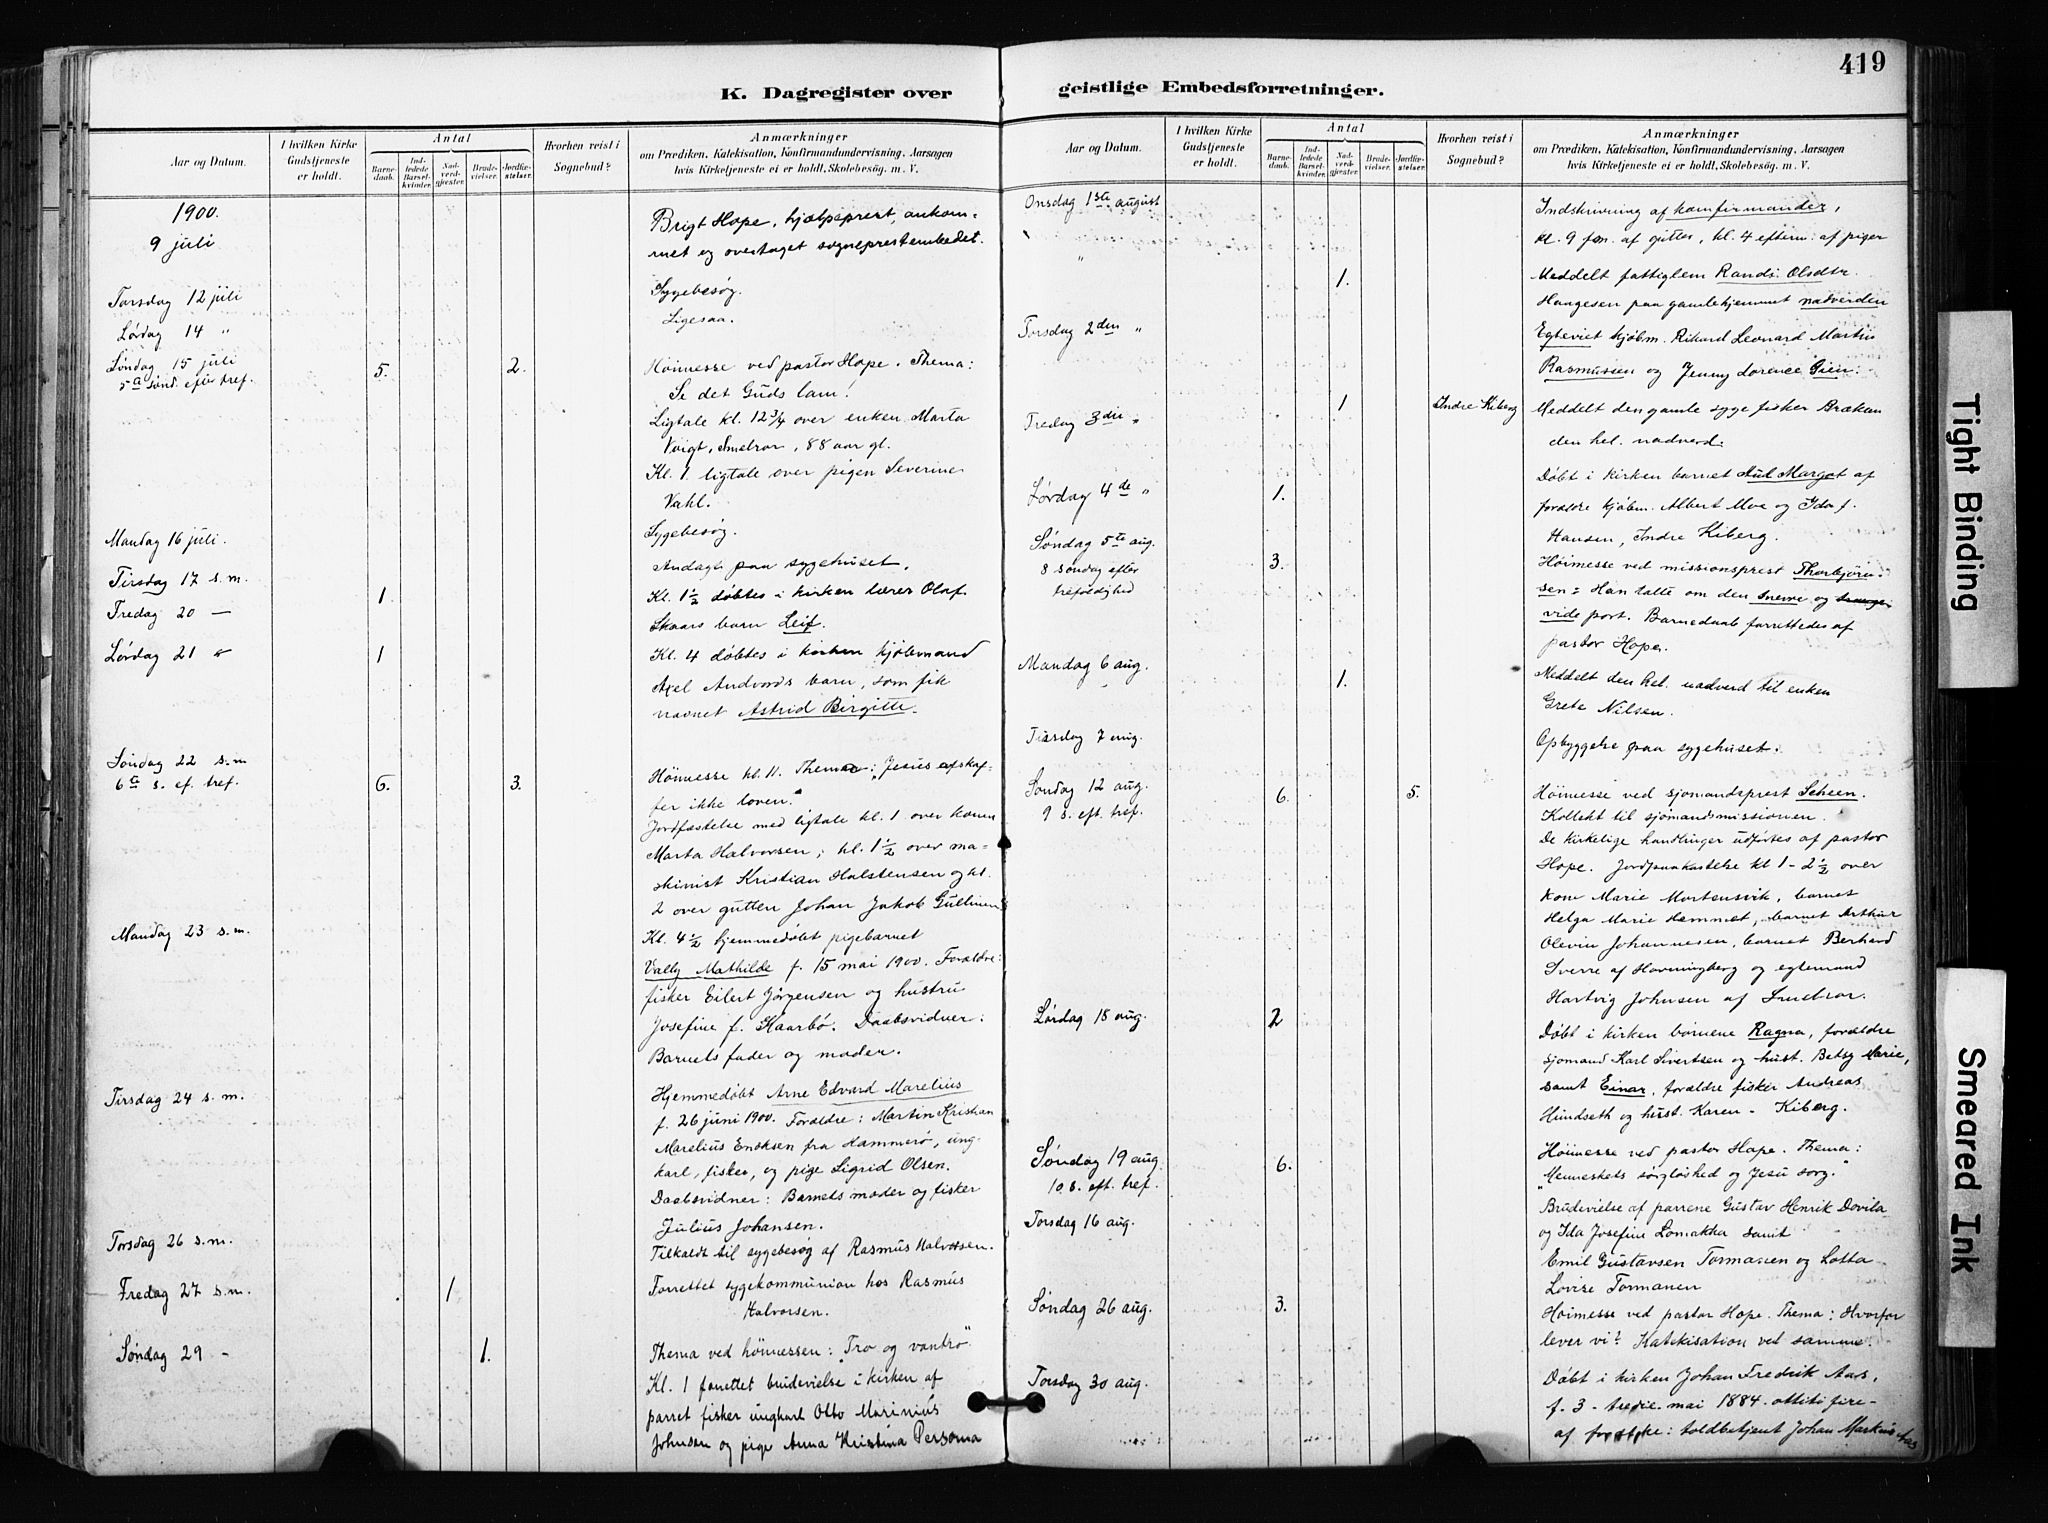 419
K. Dagregister over geistlige Embedsforretninger.
Aar og Datum.
I hvilken Kirke Gudstjeneste er holdt.
Antal
Barnedaab.
Indledede Barselkvinder.
Nadverdgjester.
Brudevielser.
Jordfæstelser.
Hvorhen reist i Sognebud?
Anmærkninger
om Prædiken, Katekisation, Konfirmandundervisning, Aarsagen
hvis Kirketjeneste ei er holdt, Skolebesøg. m. V.
1900.
9 juli
Brigt Hope, hjælpeprest, ankom-
met og overtaget sogneprestembedet.
Torsdag 12 juli
Sygebesøg.
Lørdag 14 "
Ligesaa.
Søndag 15 juli
5a sønd. efter tref.
5. 2.
Høimesse ved pastor Hope. Thema:
Se det Guds lam!
Ligtale kl. 12 3/4 over enken Marta
Voigt, Smelror, 88 aar gl.
Kl. 1 ligtale over pigen Severine
Vahl.
Mandag 16 juli.
Sygebesøg.
Tirsdag 17 s.m.
Andagt paa sygehuset.
Fredag 20 —
1
Kl. 1 1/2 døbtes i kirken lærer Olaf
Skaars barn Leif.
Lørdag 21 "
1
Kl. 4 døbtes i kirken kjøbmand
Axel Andvords barn, som fik
navnet Astrid Birgitte.
Søndag 22 s.m.
6te s. ef. tref.
6. 3.
Høimesse kl. 11. Thema: "Jesus afskaf-
fer ikke loven."
Jordfæstelse med ligtale kl. 1 over konen
Marta Halvorsen; kl. 1 1/2 over ma-
skinist Kristian Halstensen og kl.
2 over gutten Johan Jakob Gullinen
Mandag 23 s.m.
Kl. 4 1/2 hjemmedøbt pigebarnet
Vally Mathilde f. 15 mai 1900. Forældre:
fisker Eilert Jørgensen og hustru
Josefine f. Haarbø. Daabsvidner:
Barnets fader og moder.
Tirsdag 24 s.m.
Hjemmedøbt Arne Edvard Marelius
f. 26 juni 1900. Forældre: Martin Kristian
Marelius Enoksen fra Hammerø, ung-
karl, fisker, og pige Sigrid Olsen.
Daabsvidner: Barnets moder og fisker
Julius Johansen.
Torsdag 26 s.m.
Tilkaldt til sygebesøg af Rasmus Halvorsen.
Fredag 27 s.m.
1
Forrettet sygekommunion hos Rasmus
Halvorsen.
Søndag 29 -
1.
Thema ved høimessen: "Tro og vantro"
Kl. 1 forrettet brudevielse i kirken af
parret fisker ungkarl Otto Marinius
Johnsen og pige Anna Kristina Persoma
Aar og Datum.
I hvilken Kirke Gudstjeneste er holdt.
Antal
Barnedaab.
Indledede Barselkvinder.
Nadverdgjester.
Brudevielser.
Jordfæstelser.
Hvorhen reist i Sognebud?
Anmærkninger
om Prædiken, Katekisation, Konfirmandundervisning, Aarsagen
hvis Kirketjeneste ei er holdt, Skolebesøg. m. V.
Onsdag 1ste august
Indskrivning af konfirmander,
kl. 9 fm. af gutter, kl. 4 efterm. af piger
"
1.
Meddelt fattiglem Randi Olsdtr.
Haagesen paa gamlehjemmet nadverden
Torsdag 2den "
Egteviet kjøbm. Rikard Leonard Martin
Rasmussen og Jenny Lorence Gien.
Fredag 3die "
1 Indre Kiberg
Meddelt den gamle syge fisker Brækan
den hel. nadverd.
Lørdag 4de "
1.
Døbt i kirken barnet Aul Margot af
forældre kjøbm. Albert Moe og Ida f.
Hansen, Indre Kiberg.
Søndag 5te aug.
8 søndag efter
trefoldighed
3.
Høimesse ved missionsprest Thorbjørn-
sen: Han talte om den snevre og
vide port. Barnedaab forrettedes af
pastor Hope.
Mandag 6 aug.
1.
Meddelt den hel. nadverd til enken
Grete Nilsen.
Tirsdag 7 aug.
Opbyggelse paa sygehuset.
Søndag 12 aug.
9 s. eft. tref.
6. 5.
Høimesse ved sjømandsprest Scheen.
Kollekt til sjømandsmissionen.
De kirkelige handlinger udførtes af pastor
Hope. Jordpaakastelse kl 1 - 2 1/2 over
kone Marie Mortensvik, barnet
Helga Marie Hemmet, barnet Arthur
Olevin Johannesen, barnet Berhard
Sverre af Havningberg og egtemand
Hartvig Johnsen af Smelror.
Lørdag 18 aug.
2
Døbt i kirken børnene Ragna, forældre
sjømand Karl Sivertsen og hust. Betsy Marie,
samt Einar, forældre fisker Andreas
Hundseth og hust. Karen - Kiberg.
Søndag 19 aug.
10 s. eft. tref.
6.
Høimesse ved pastor Hope. Thema:
"Menneskets sørgløshed og Jesu sorg."
Torsdag 16 aug.
Brudevielse af parrene Gustav Henrik Dovila
og Ida Josefine Lomakka samt
Emil Gustavsen Tormanen og Lotta
Lovise Tormanen
Søndag 26 aug.
3.
Høimesse ved pastor Hope. Thema: Hvorfor
lever vi? Katekisation ved samme.
Torsdag 30 aug.
Døbt i kirken Johan Fredrik Aas,
f. 3 - tredie - mai 1884 - ottiti fire -
af forældre: toldbetjent Johan Markus Aas
Tight Binding
Smeared Ink